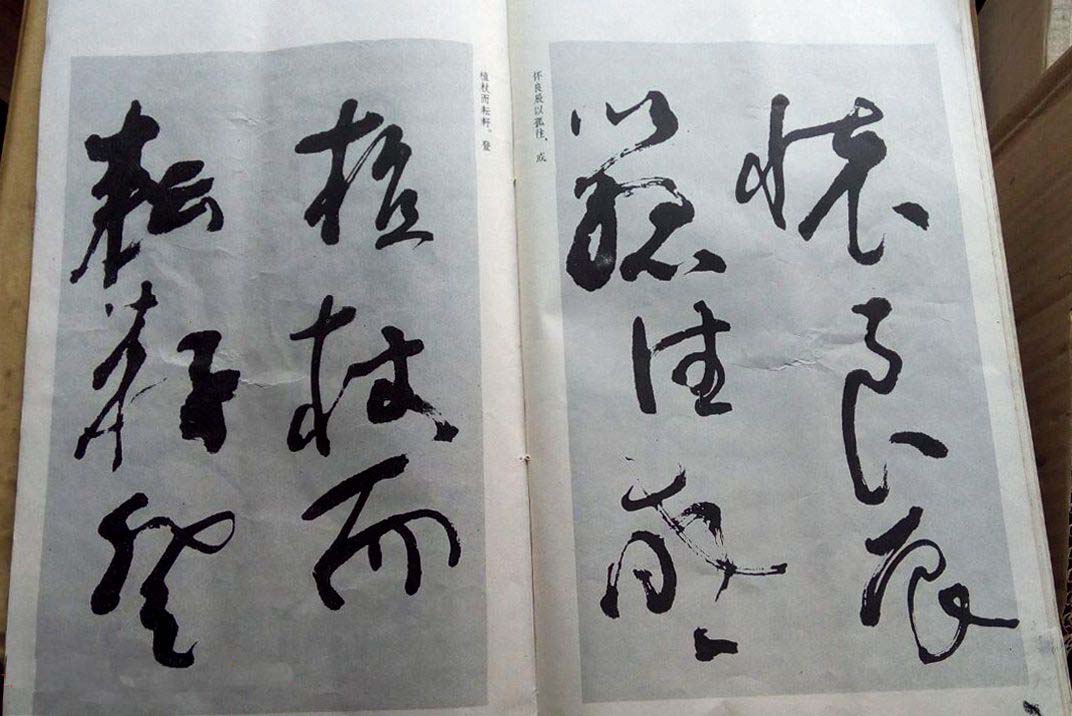 懷良辰
以孤往或
怀良辰以孤往，或
植杖而耘耔。登
植杖而
耘耔登